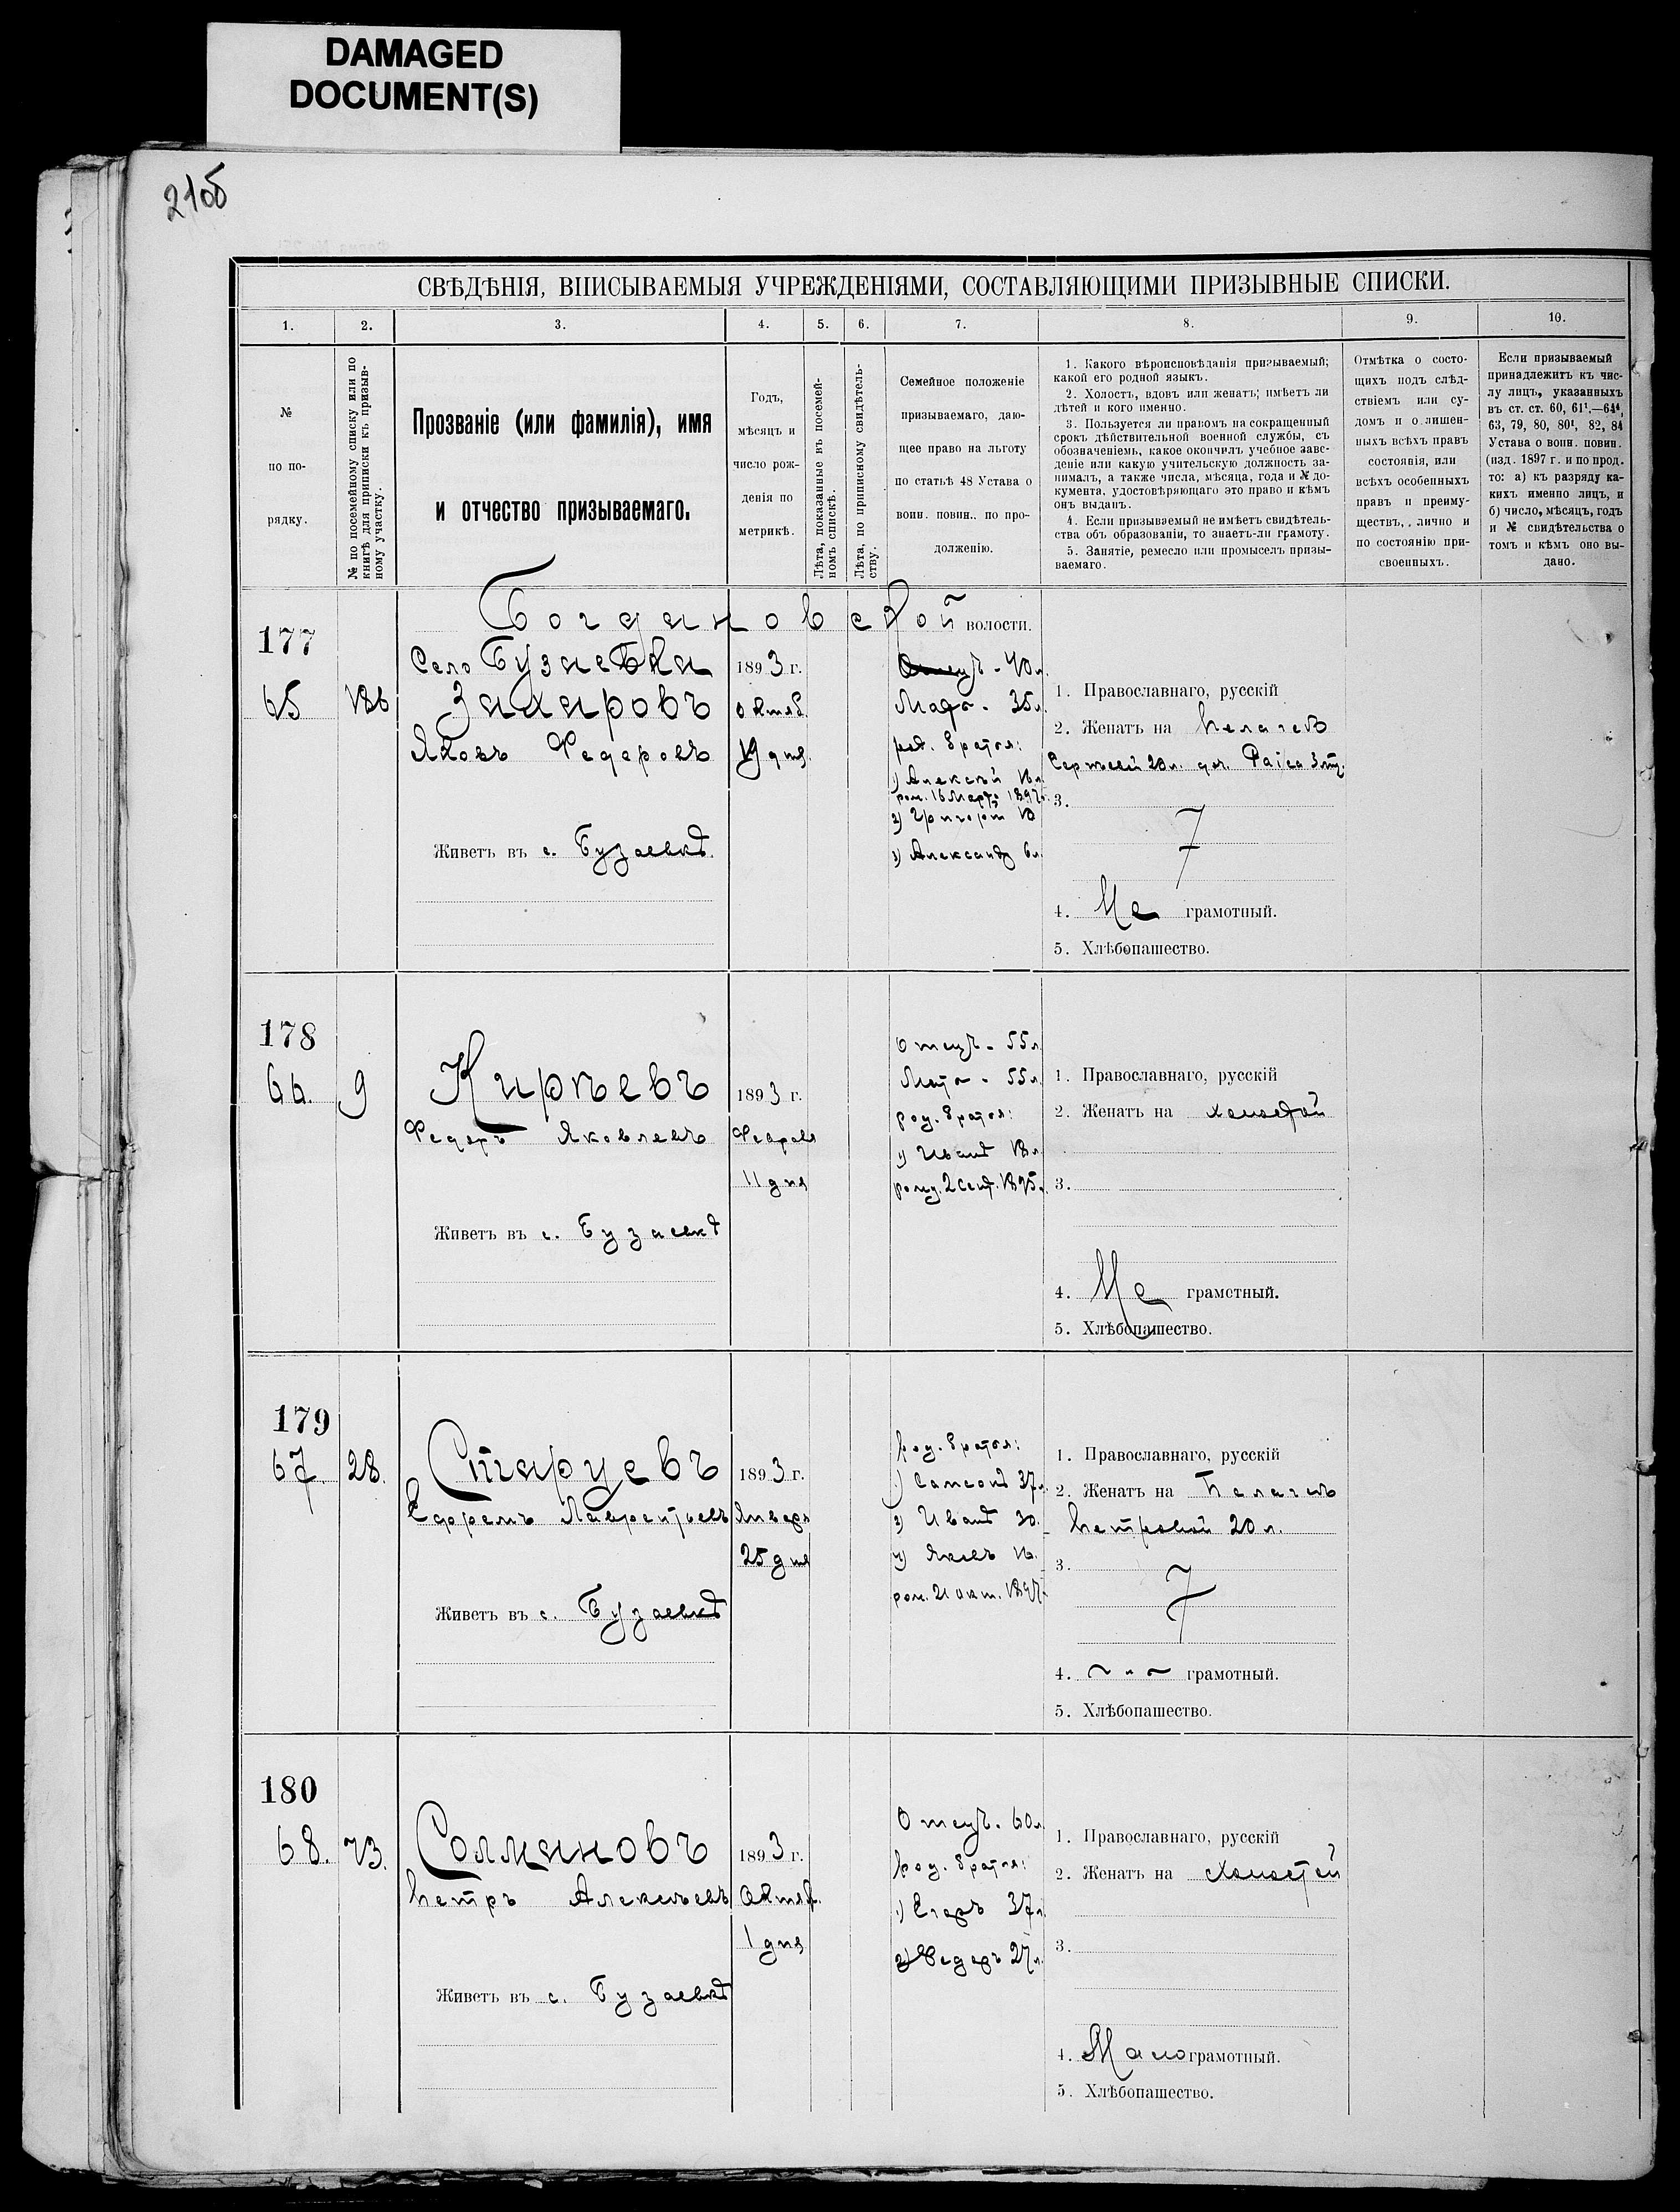 DAMAGED
DOCUMENT(S)
210б
СВѢДѢНІЯ, ВПИСЫВАЕМЫЯ УЧРЕЖДЕНІЯМИ, СОСТАВЛЯЮЩИМИ ПРИЗЫВНЫЕ СПИСКИ.
1. 2. 3. 4. 5. 6. 7. 8. 9. 10.
№
по по-
рядку.
№ по посемейному списку или по
книгѣ для приписки къ призыв-
ному участку.
Прозваніе (или фамилія), имя
и отчество призываемаго.
Годъ,
мѣсяцъ и
число рож-
денія по
метрикѣ.
Лѣта, показанные въ посемей-
номъ спискѣ.
Лѣта, по приписному свидѣтель-
ству.
Семейное положеніе
призываемаго, даю-
щее право на льготу
по статьѣ 48 Устава о
воин. повин., по про-
долженію.
1. Какого вѣроисповѣданія призываемый;
какой его родной языкъ.
2. Холостъ, вдовъ или женатъ; имѣетъ ли
дѣтей и кого именно.
3. Пользуется ли правомъ на сокращенный
срокъ дѣйствительной военной службы, съ
обозначеніемъ, какое окончилъ учебное заве-
деніе или какую учительскую должность за-
нималъ, а также числа, мѣсяца, года и № до-
кумента, удостовѣряющаго это право и кѣмъ
онъ выданъ.
4. Если призываемый не имѣетъ свидѣтель-
ства объ образованіи, то знаетъ-ли грамоту.
5. Занятіе, ремесло или промыселъ призы-
ваемаго.
Отмѣтка о состо-
щихъ подъ слѣд-
ствіемъ или су-
домъ и о лишен-
ныхъ всѣхъ правъ
состоянія, или
всѣхъ особенныхъ
правъ и преиму-
ществъ, лично и
по состоянію при-
своенныхъ.
Если призываемый
принадлежитъ къ чис-
лу лицъ, указанныхъ
въ ст. ст. 60, 61¹.—64⁴,
63, 79, 80, 80¹, 82, 84
Устава о воин. повин.
(изд. 1897 г. и по прод.
то: а) къ разряду ка-
кихъ именно лицъ, и
б) число, мѣсяцъ, годъ
и № свидѣтельства о
томъ и кѣмъ оно вы-
дано.
Богдановской волости.
177
Село Бузаевка 1893 г. Отецъ - 40 л.
65 186 Захаровъ Октяб. Мать - 35 л.
1. Православнаго, русскій
2. Женатъ на Пелагеѣ
Яковъ Федоровъ 19 дня. род. братья:
Сергѣевой 20 л. доч. Раиса 3 м.
1) Алексѣй 16 л.
род. 16 Марта 1897 г.
3.
2) Григорій 10
7
Живетъ въ с. Бузаевкѣ. 3) Александ 6 л.
4. Не грамотный.
5. Хлѣбопашество.
178
Отецъ - 55 л.
66. 9 Кирѣевъ 1893 г. Мать - 55 л.
1. Православнаго, русскій
Федоръ Яковлевъ Февраля род. братья:
2. Женатъ на холостой
1) Иванъ 18 л.
11 дня род. 2 сент. 1895 г. 3.
Живетъ въ с. Бузаевкѣ
4. Не грамотный.
5. Хлѣбопашество.
179
род. братья:
67. 28. Старцевъ 1893 г. 1) Самсонъ 37 л.
1. Православнаго, русскій
2. Женатъ на Пелагеѣ
Ефремъ Лаврентьевъ Января 3) Иванъ 30.
Петровой 20 л.
25 дня 4) Яковъ 16.
3.
род. 21 окт. 1897 г.
7
Живетъ въ с. Бузаевкѣ
4. ~ " ~ грамотный.
5. Хлѣбопашество.
180
Отецъ - 60 л.
68. 73. Солмановъ 1893 г. род. братья:
1. Православнаго, русскій
2. Женатъ на Холостой
Петръ Алексѣевъ Октяб. 1) Егоръ 37 л.
1 дня 2) Федоръ 27 л.
3.
Живетъ въ с. Бузаевкѣ
4. Малограмотный.
5. Хлѣбопашество.